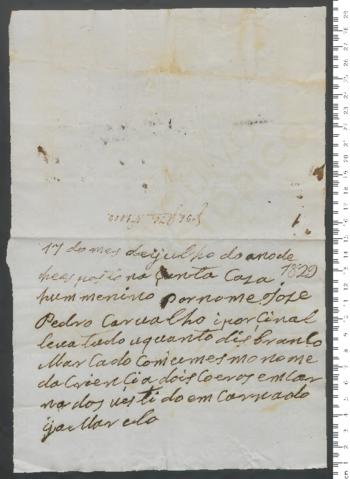 17 do mes de julho do ano de
1829
he esposto na Santa Casa
hum menino por nome Joze
Pedro Carvalho i por Sinal
leva lado uquanto dis branlo
Marcado com u mesmo nome
da Criencia dois Coeros emcar
nados vestido em Carnado
i ja Marelo